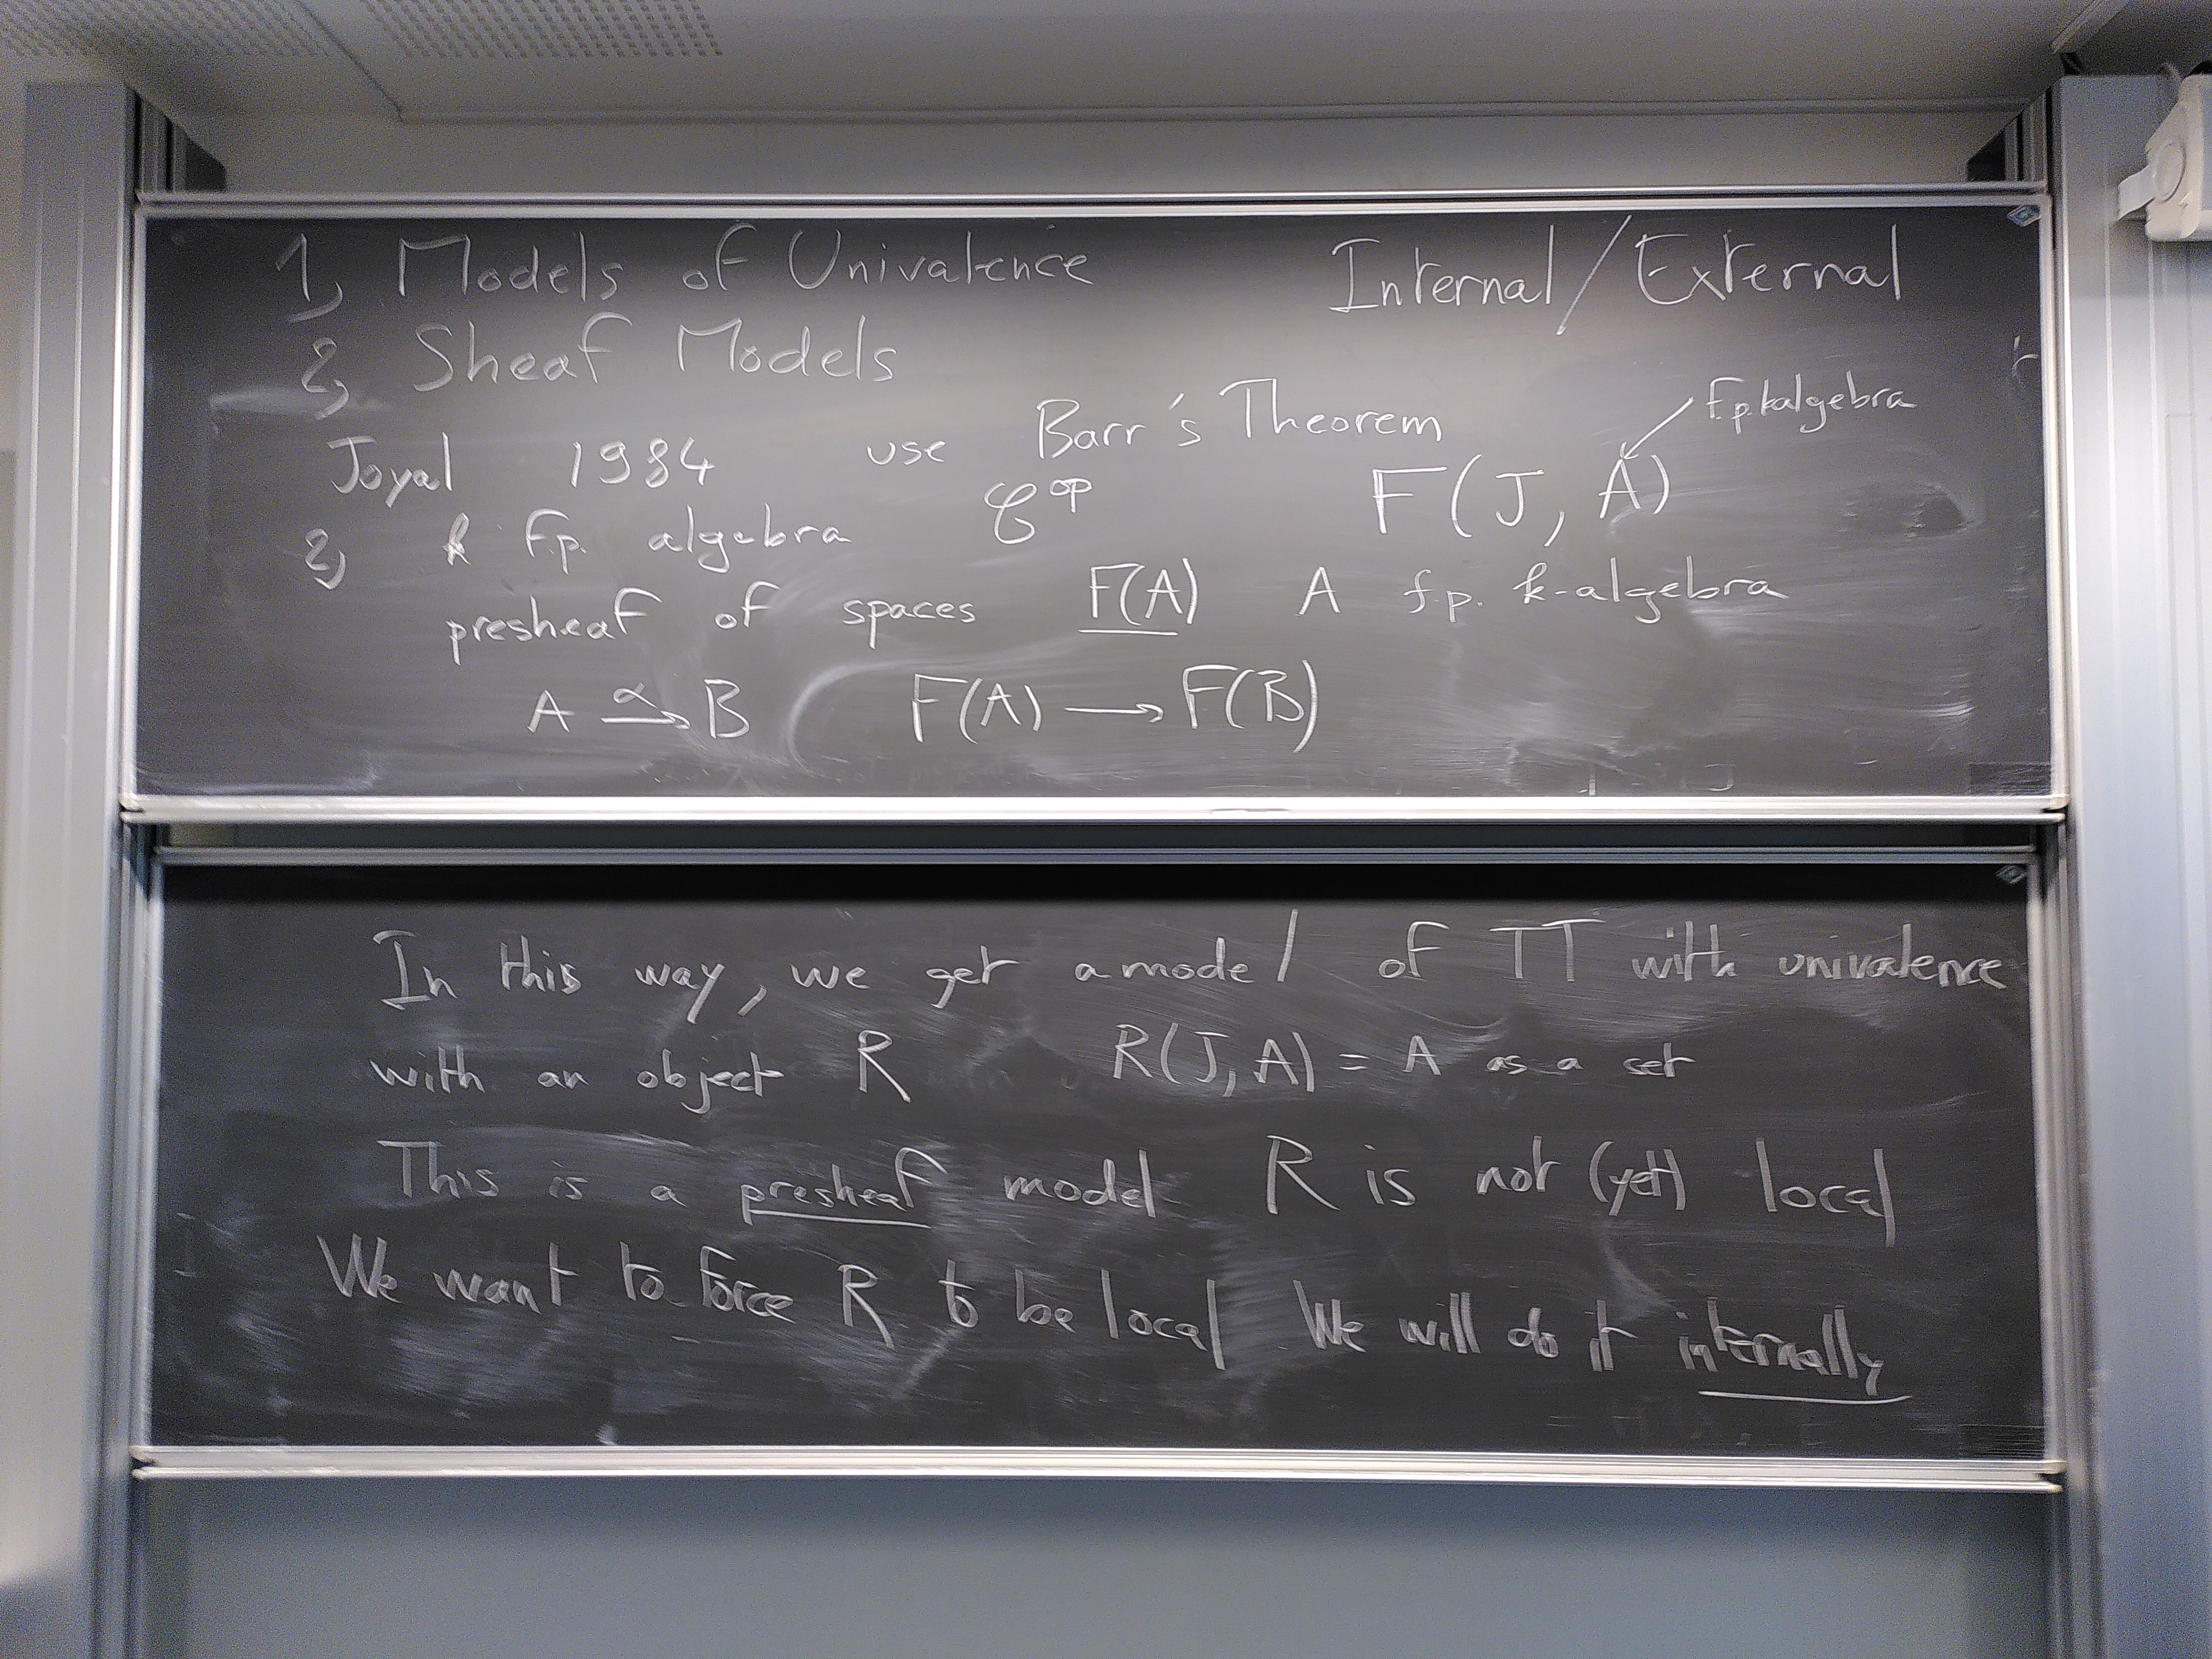 1) Models of Univalence Internal/External
2) Sheaf Models
f.p. k algebra
Joyal 1984 use Barr's Theorem
2) k f.p. algebra 𝒞^op F(J, A)
presheaf of spaces F(A) A f.p. k-algebra
A →^α B F(A) → F(B)
In this way, we get a model of TT with univalence
with an object R R(J, A) = A as a set
This is a presheaf model R is not (yet) local
We want to force R to be local We will do it internally